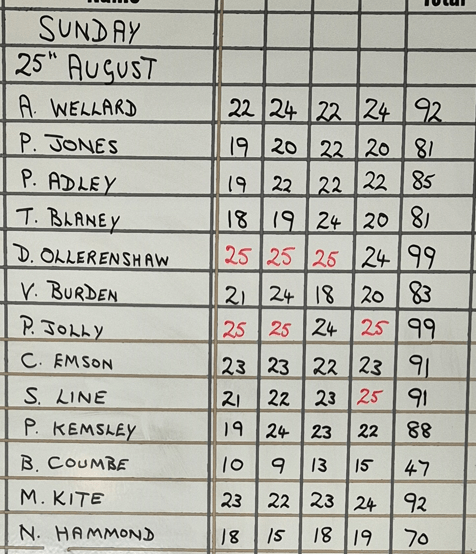 SUNDAY
25TH AUGUST
A. WELLARD 22 24 22 24 92
P. JONES 19 20 22 20 81
P. ADLEY 19 22 22 22 85
T. BLANEY 18 19 24 20 81
D. OLLERENSHAW 25 25 25 24 99
V. BURDEN 21 24 18 20 83
P. JOLLY 25 25 24 25 99
C. EMSON 23 23 22 23 91
S. LINE 21 22 23 25 91
P. KEMSLEY 19 24 23 22 88
B. COUMBE 10 9 13 15 47
M. KITE 23 22 23 24 92
N. HAMMOND 18 15 18 19 70